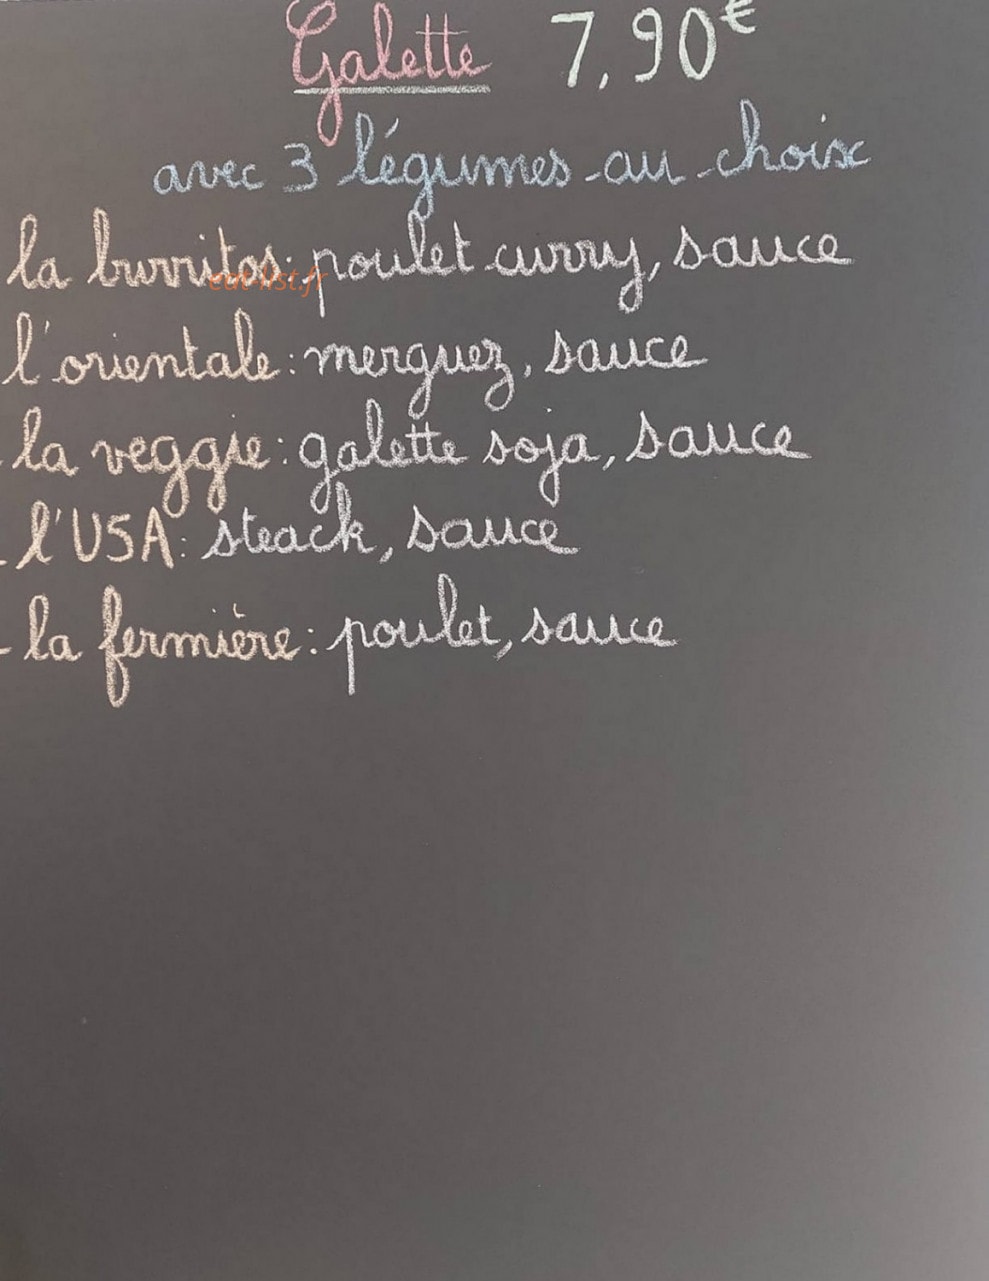 Galette 7,90€
avec 3 légumes au choix
la burritos: poulet curry, sauce
eat-list.fr
l'orientale: merguez, sauce
- la veggie: galette soja, sauce
- l'USA: steack, sauce
- la fermière: poulet, sauce